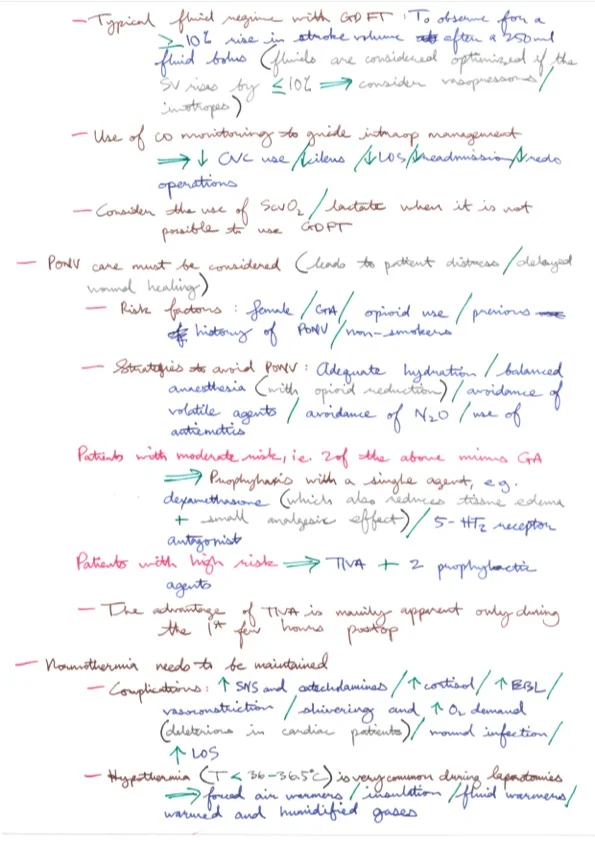 — Typical fluid regime with GDFT : To observe for a
≥ 10% rise in stroke volume after a 250ml
fluid bolus (fluids are considered optimized if the
SV rises by ≤ 10% ⟹ consider vasopressors/
inotropes)
— Use of CO monitoring to guide intraop management
⟹ ↓ CVC use /↓ileus /↓LOS/↓readmission/↓redo
operations
— Consider the use of ScvO2 / lactate when it is not
possible to use GDFT
— PONV care must be considered (leads to patient distress / delayed
wound healing)
— Risk factors : female / GA / opioid use / previous
history of PONV / non-smokers
— Strategies to avoid PONV : Adequate hydration / balanced
anaesthesia (with opioid reduction) / avoidance of
volatile agents / avoidance of N2O / use of
antiemetics
Patients with moderate risk, i.e. 2 of the above minus GA
⟹ Prophylaxis with a single agent, e.g.
dexamethasone (which also reduces tissue edema
+ small analgesic effect) / 5-HT2 receptor
antagonist
Patients with high risk ⟹ TIVA + 2 prophylactic
agents
— The advantage of TIVA is mainly apparent only during
the 1st few hours postop
— Normothermia needs to be maintained
— Complications : ↑ SNS and catecholamines / ↑ cortisol / ↑ EBL /
vasoconstriction / shivering and ↑ O2 demand
(deleterious in cardiac patients) / wound infection /
↑ LOS
— Hypothermia (T < 36-36.5°C) is very common during laparotomies
⟹ forced air warmers / insulation / fluid warmers /
warmed and humidified gases